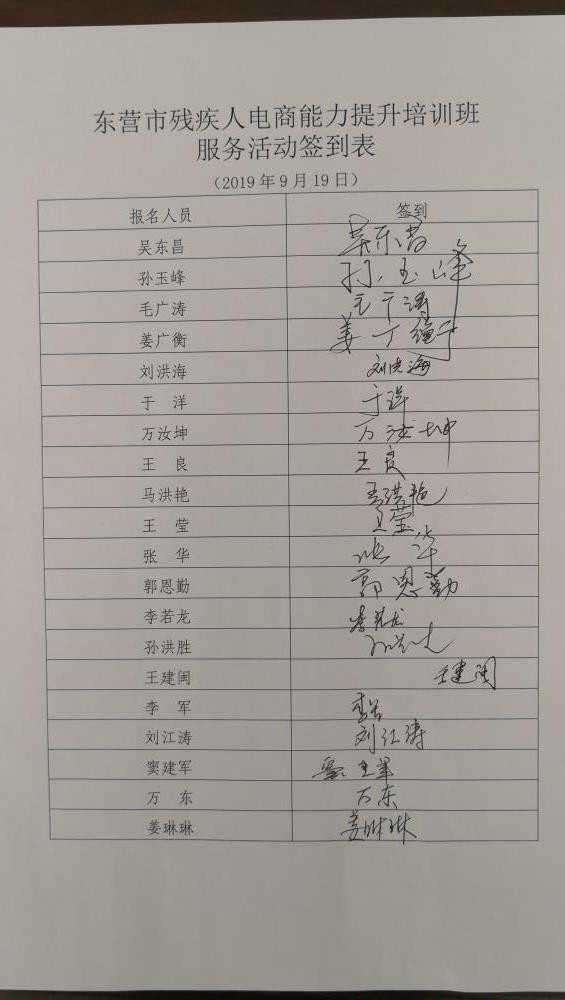 东营市残疾人电商能力提升培训班
服务活动签到表
（2019年9月19日）
报名人员 签到
吴东昌 吴东昌
孙玉峰 孙玉峰
毛广涛 毛广涛
姜广衡 姜广衡
刘洪海 刘洪海
于 洋 于洋
万汝坤 万汝坤
王 良 王良
马洪艳 马洪艳
王 莹 王莹
张 华 张华
郭恩勤 郭恩勤
李若龙 李若龙
孙洪胜
王建闽 王建闽
李 军
刘江涛 刘江涛
窦建军
万 东 万东
姜琳琳 姜琳琳